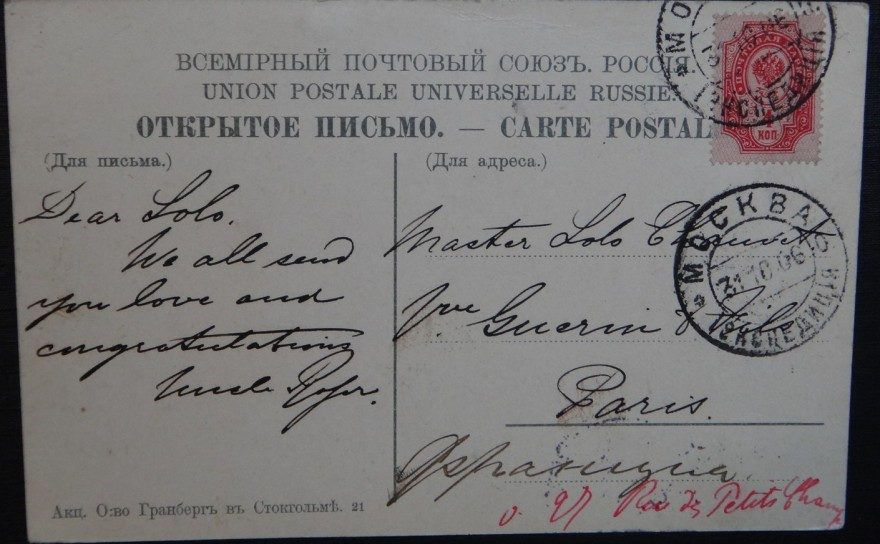 ВСЕМІРНЫЙ ПОЧТОВЫЙ СОЮЗЪ. РОССІЯ.
UNION POSTALE UNIVERSELLE RUSSIE.
ОТКРЫТОЕ ПИСЬМО. — CARTE POSTAL
(Для письма.)
(Для адреса.)
Dear Lolo.
We all send
you love and
congratulations
Uncle
Master Lolo
Guerin &
Paris.
Франция
v. 97 Rue des Petits Champs
МОСКВА
31 10 06
ЭКСПЕДИЦІЯ
МО
ЭКСПЕДИЦІЯ
КОП
Акц. О-во Гранбергъ въ Стокгольмѣ. 21